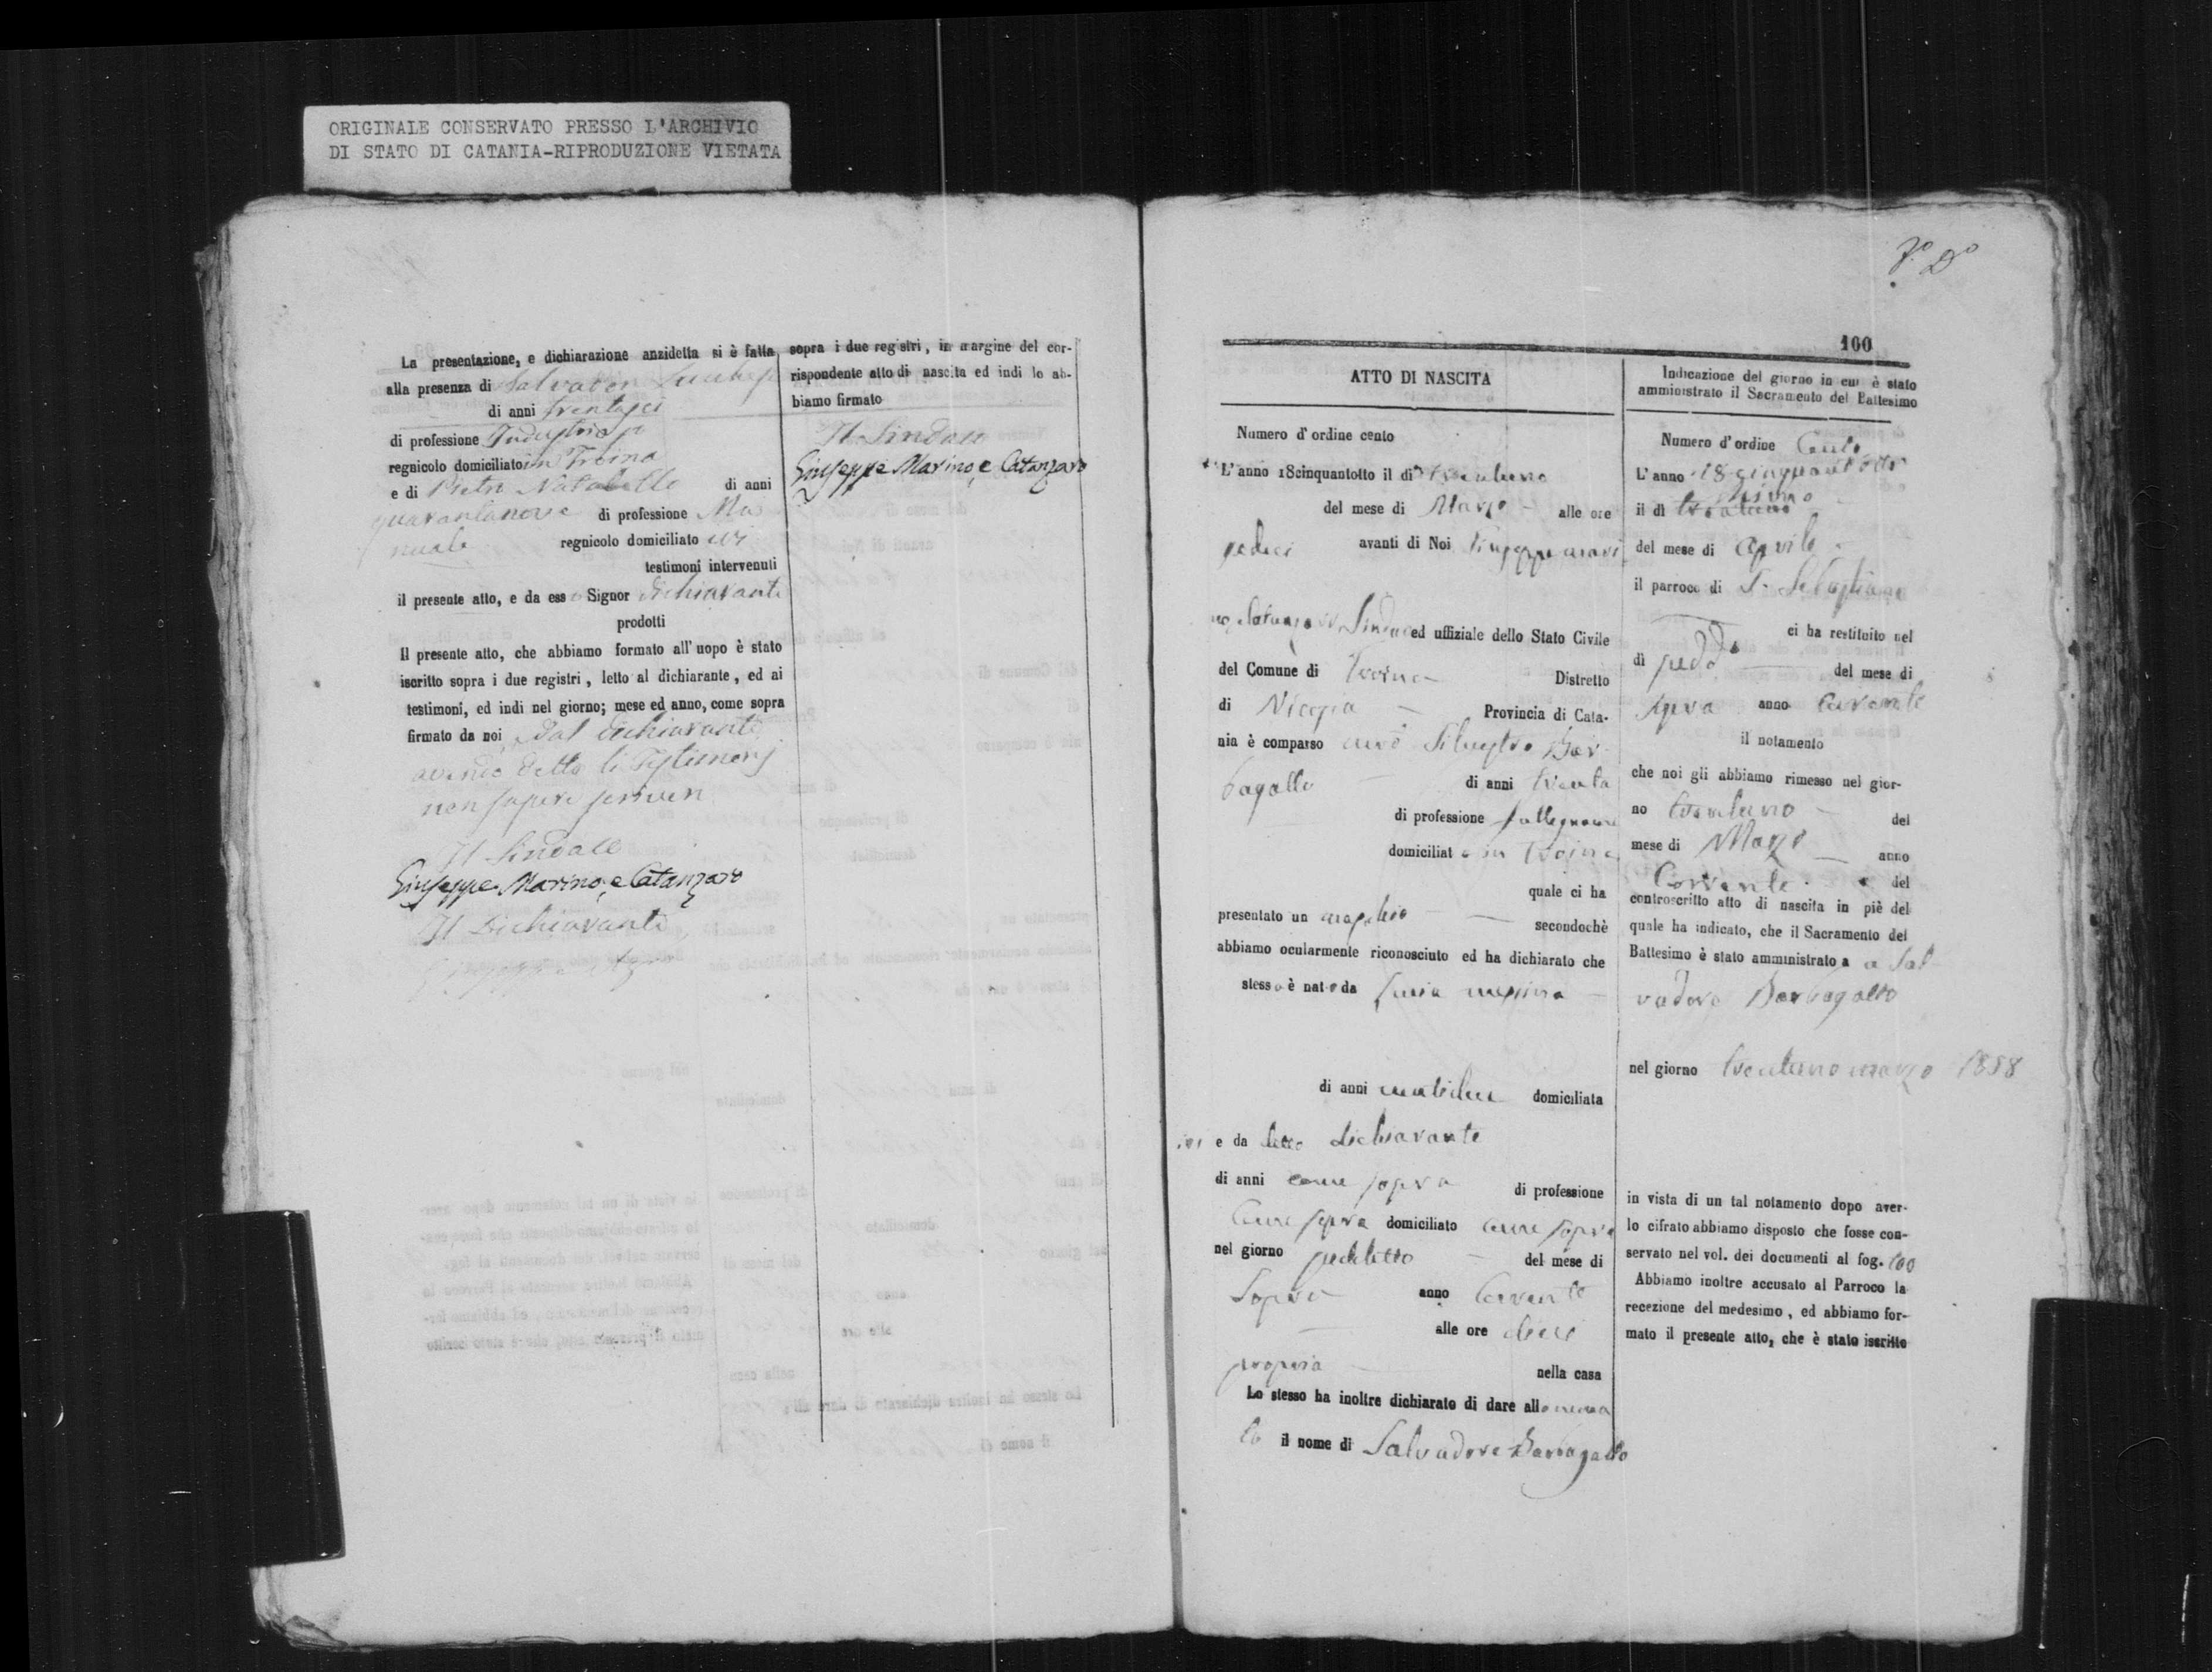 ORIGINALE CONSERVATO PRESSO L'ARCHIVIO
DI STATO DI CATANIA-RIPRODUZIONE VIETATA
La presentazione, e dichiarazione anzidetta si è fatta
alla presenza di Salvator
di anni trentasei
di professione Industrioso
regnicolo domiciliato in Troina
e di Pietro Natabello di anni
quarantanove di professione Ma
nuale regnicolo domiciliato ivi
testimoni intervenuti
il presente atto, e da esso Signor dichiarante
prodotti
Il presente atto, che abbiamo formato all'uopo è stato
iscritto sopra i due registri, letto al dichiarante, ed ai
testimoni, ed indi nel giorno; mese ed anno, come sopra
firmato da noi dal dichiarante
avendo detto li Testimonj
non sapere scrivere
Il Sindaco
Giuseppe Marino, e Catanzaro
Il Dichiarante
sopra i due registri, in margine del cor-
rispondente atto di nascita ed indi lo ab-
biamo firmato
Il Sindaco
Giuseppe Marino, e Catanzaro
100
ATTO DI NASCITA
Numero d'ordine cento
L'anno 18cinquantotto il dì trentuno
del mese di Marzo alle ore
sedeci avanti di Noi Giuseppe Mari
no, e Catanzaro Sindaco ed uffiziale dello Stato Civile
del Comune di Troina Distretto
di Nicosia Provincia di Cata-
nia è comparso Silvestro Bar
bagallo di anni trenta
di professione fallegname
domiciliato in Troina
quale ci ha
presentato un maschio secondochè
abbiamo ocularmente riconosciuto ed ha dichiarato che
lo stesso è nato da Messina
di anni domiciliata
ivi e da detto dichiarante
di anni come sopra di professione
Come sopra domiciliato come sopra
nel giorno sudetto del mese di
Sopra anno Corrente
alle ore dieci
propria nella casa
Lo stesso ha inoltre dichiarato di dare allo neona
to il nome di Salvadore Barbagallo
Indicazione del giorno in cui è stato
amministrato il Sacramento del Battesimo
Numero d'ordine Cento
L'anno 18cinquantotto
il dì primo
del mese di Aprile
il parroco di S. Sebastiano
ci ha restituito nel
dì sudd.o del mese di
sopra anno Corrente
il notamento
che noi gli abbiamo rimesso nel gior-
no trentuno del
mese di Marzo anno
Corrente del
controscritto atto di nascita in piè del
quale ha indicato, che il Sacramento del
Battesimo è stato amministrato a a Sal
vadore Barbagallo
nel giorno trentuno marzo 1858
in vista di un tal notamento dopo aver-
lo cifrato abbiamo disposto che fosse con-
servato nel vol. dei documenti al fog. 100
Abbiamo inoltre accusato al Parroco la
recezione del medesimo, ed abbiamo for-
mato il presente atto, che è stato iscritto